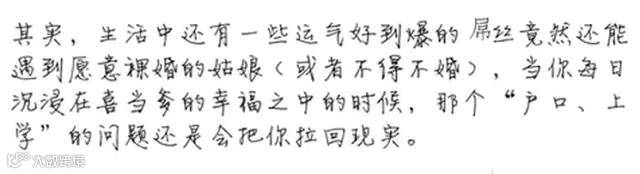 其实，生活中还有一些运气好到爆的屌丝竟然还能
遇到愿意裸婚的姑娘（或者不得不婚），当你每日
沉浸在喜当爹的幸福之中的时候，那个“户口、上
学”的问题还是会把你拉回现实。
大数跨境